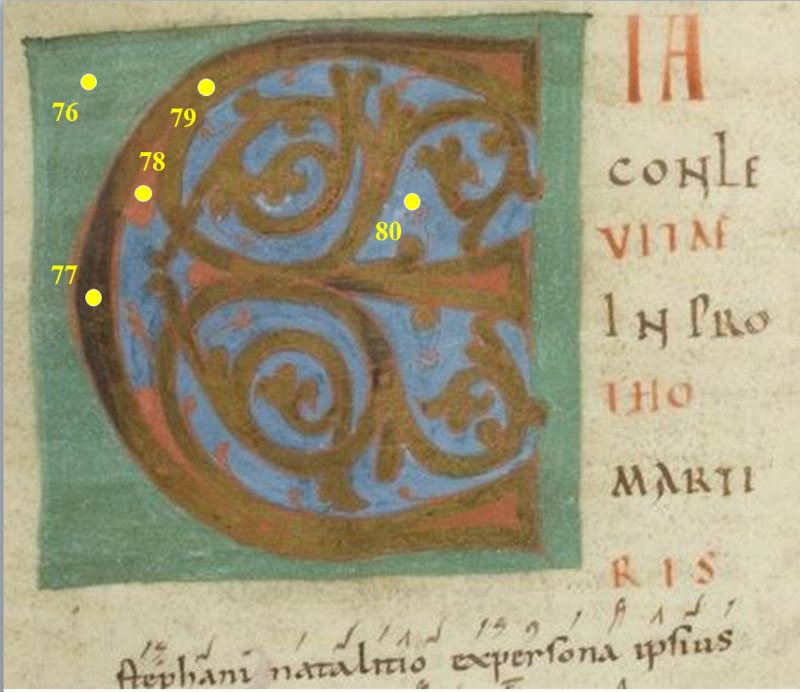 E IA
CONLE
VITAE
IN PRO
THO
MARTI
RIS
stephani natalitio expersona ipsius
76
77
78
79
80